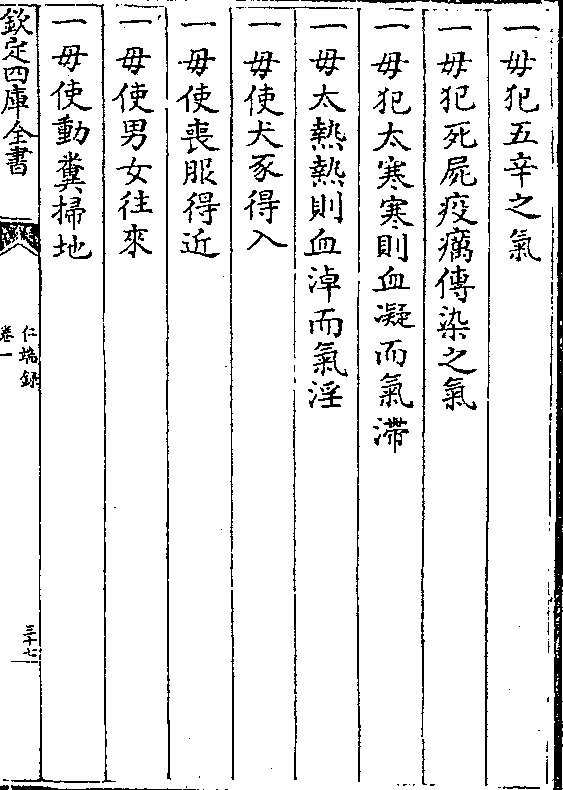 一毋犯五辛之氣
一毋犯死屍疫癘傳染之氣
一毋犯太寒寒則血凝而氣滯
一毋太熱熱則血淖而氣淫
一毋使犬豕得入
一毋使喪服得近
一毋使男女往來
一毋使動糞掃地
欽定四庫全書
仁端錄
卷一
三十七